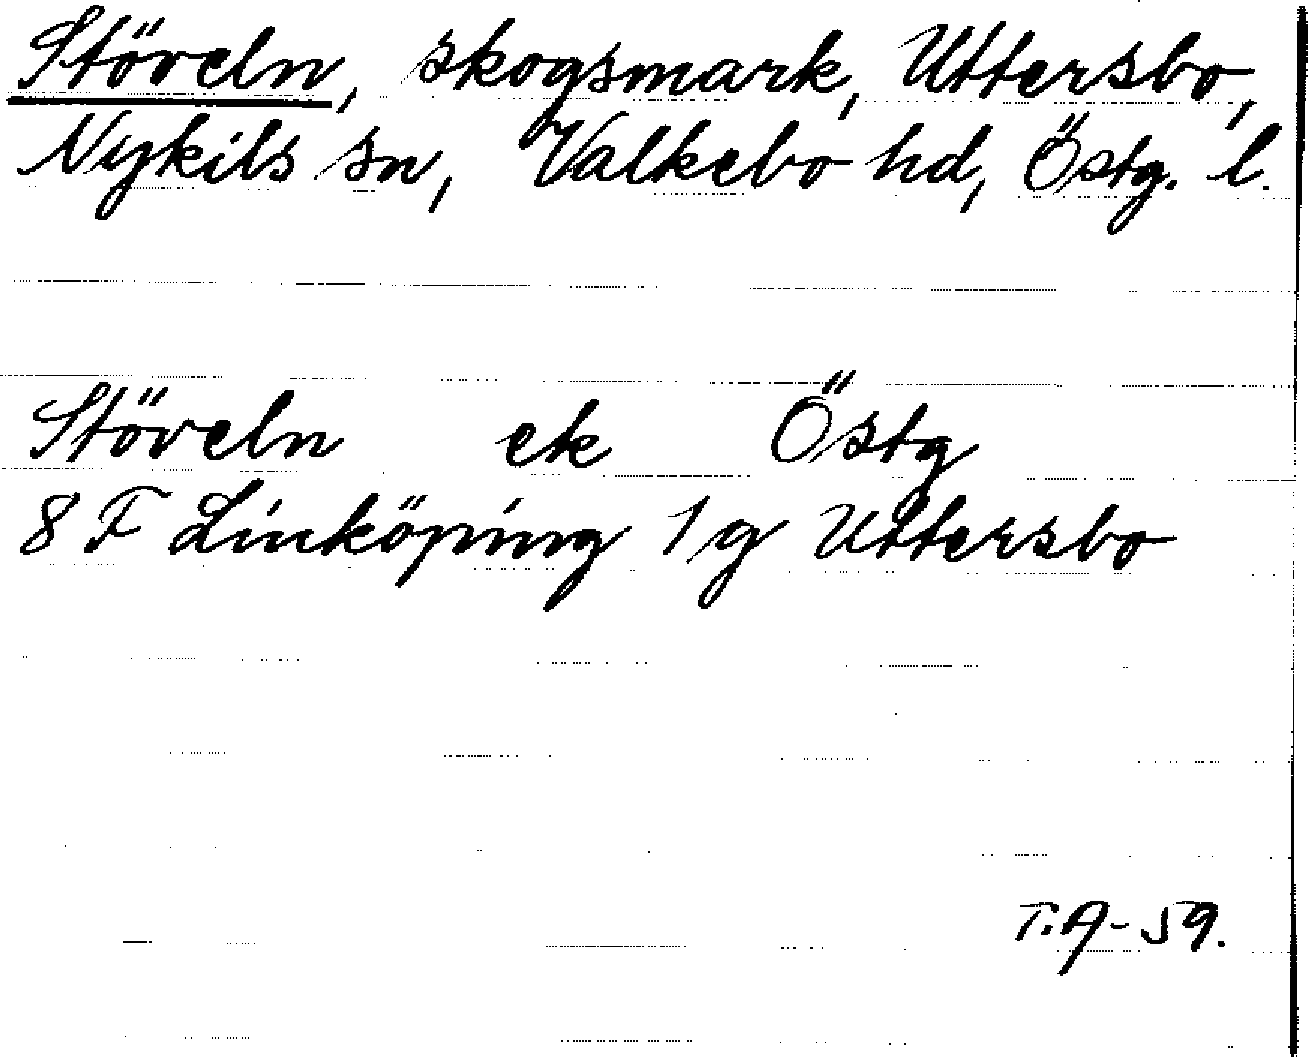 Stöveln, skogsmark, Uttersbo,
Nykils sn, Valkebo hd, Östg. l.
Stöveln ek Östg
8 F Linköping 1 g Uttersbo
T.A-59.